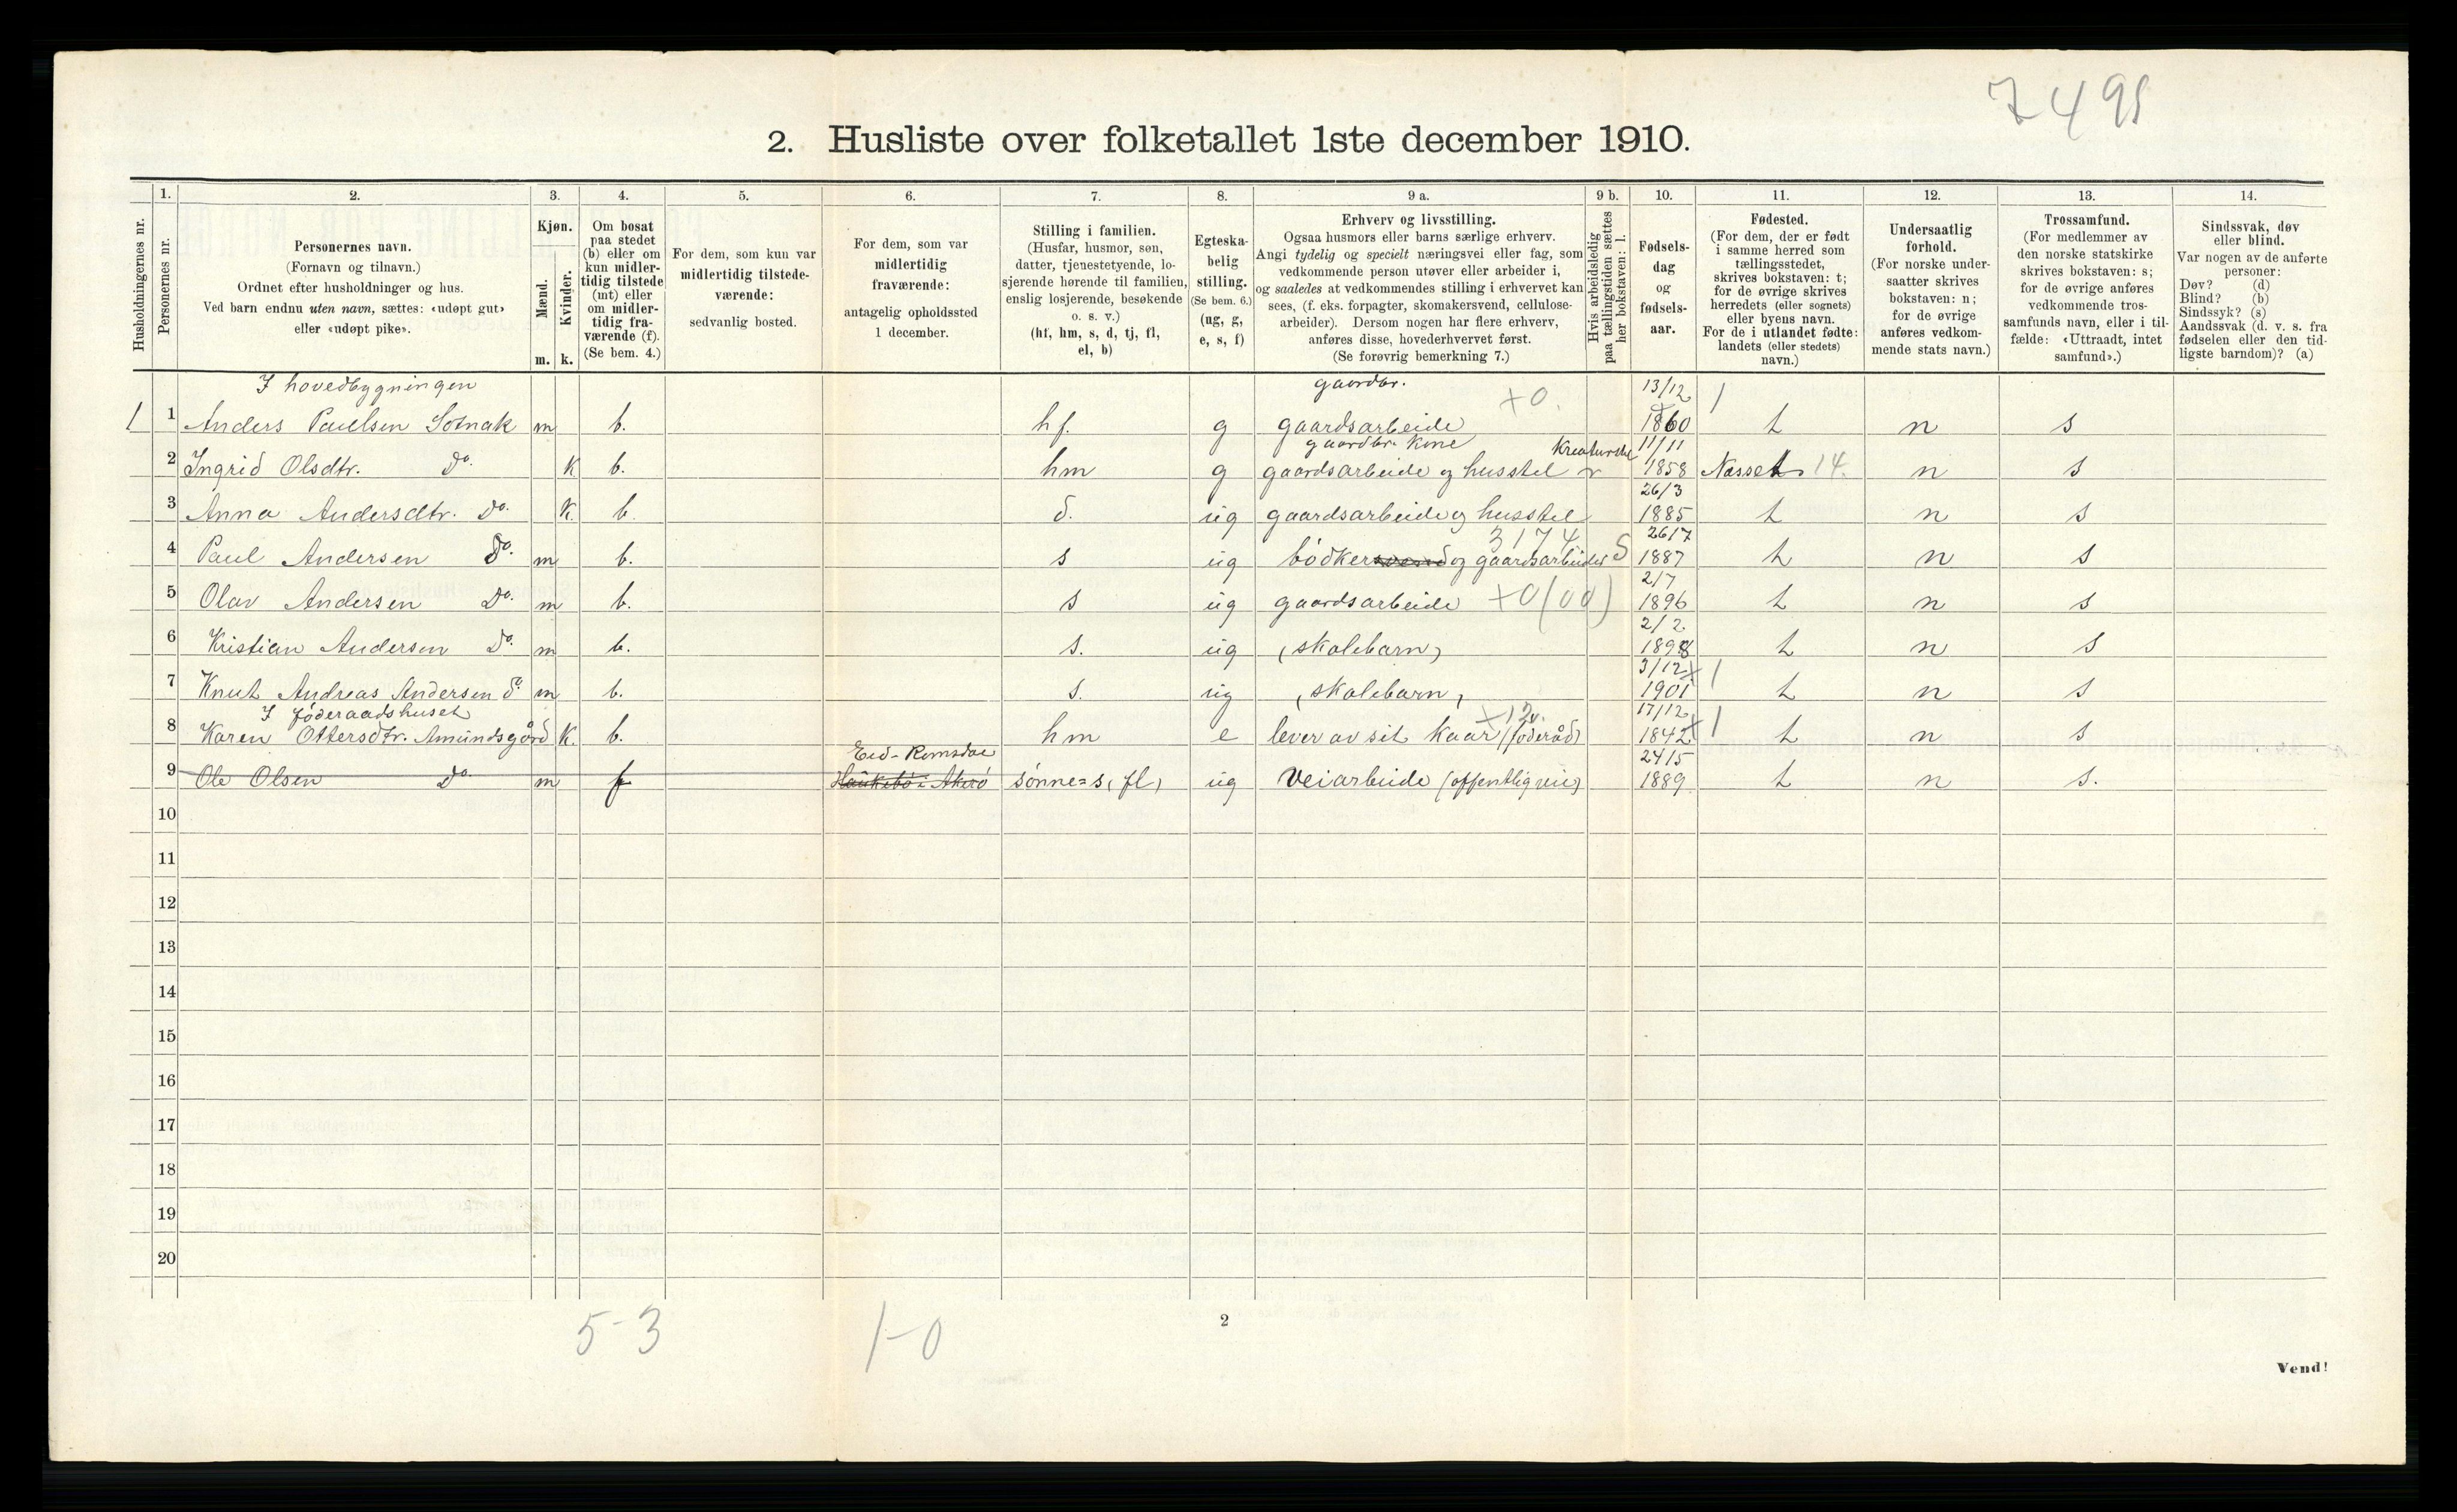 7499
2. Husliste over folketallet 1ste december 1910.
1. 2. 3. 4. 5. 6. 7. 8. 9 a. 9 b. 10. 11. 12. 13. 14.
Husholdningernes nr.
Personernes nr.
Personernes navn.
(Fornavn og tilnavn.)
Ordnet efter husholdninger og hus.
Ved barn endnu uten navn, sættes: «udøpt gut»
eller «udøpt pike».
Kjøn.
Mænd.
Kvinder.
m. k.
Om bosat
paa stedet
(b) eller om
kun midler-
tidig tilstede
(mt) eller
om midler-
tidig fra-
værende (f).
(Se bem. 4.)
For dem, som kun var
midlertidig tilstede-
værende:
sedvanlig bosted.
For dem, som var
midlertidig
fraværende:
antagelig opholdssted
1 december.
Stilling i familien.
(Husfar, husmor, søn,
datter, tjenestetyende, lo-
sjerende hørende til familien,
enslig losjerende, besøkende
o. s. v.)
(hf, hm, s, d, tj, fl,
el, b)
Egteska-
belig
stilling.
(Se bem. 6.)
(ug, g,
e, s, f)
Erhverv og livsstilling.
Ogsaa husmors eller barns særlige erhverv.
Angi tydelig og specielt næringsvei eller fag, som
vedkommende person utøver eller arbeider i,
og saaledes at vedkommendes stilling i erhvervet kan
sees, (f. eks. forpagter, skomakersvend, cellulose-
arbeider). Dersom nogen har flere erhverv,
anføres disse, hovederhvervet først.
(Se forøvrig bemerkning 7.)
Hvis arbeidsledig
paa tællingstiden sættes
her bokstaven: l.
Fødsels-
dag
og
fødsels-
aar.
Fødested.
(For dem, der er født
i samme herred som
tællingsstedet,
skrives bokstaven: t;
for de øvrige skrives
herredets (eller sognets)
eller byens navn.
For de i utlandet fødte:
landets (eller stedets)
navn.)
Undersaatlig
forhold.
(For norske under-
saatter skrives
bokstaven: n;
for de øvrige
anføres vedkom-
mende stats navn.)
Trossamfund.
(For medlemmer av
den norske statskirke
skrives bokstaven: s;
for de øvrige anføres
vedkommende tros-
samfunds navn, eller i til-
fælde: «Uttraadt, intet
samfund».)
Sindssvak, døv
eller blind.
Var nogen av de anførte
personer:
Døv? (d)
Blind? (b)
Sindssyk? (s)
Aandssvak (d. v. s. fra
fødselen eller den tid-
ligste barndom)? (a)
I hovedbygningen gaardbr. +0. 13/12
1 1 Anders Paulsen Sotnak m b. hf. g gaardsarbeide 1860 1 t n s
gaardbr. kone Kreaturstel 11/11
2 Ingrid Olsdtr. do. k b. hm g gaardsarbeide og husstel 1858 Nesset 14. n s
26/3
3 Anna Andersdtr. do. k. b. d. ug gaardsarbeide og husstel 1885 t n s
3174 26/7
4 Paul Andersen do. m b. s ug bødkersvend og gaardsarbeider S 1887 t n s
2/7
5 Olav Andersen do. m b. s ug gaardsarbeide +0(00) 1896 t n s
2/2
6 Kristian Andersen do. m b. s. ug (skolebarn) 1898 t n s
3/12
7 Knut Andreas Andersen do. m b. s. ug (skolebarn) 1901 1 t n s
I føderaadshuset +12v. 17/12
8 Karen Ottersdtr. Amundsgård k. b. hm e lever av sit kaar (føderåd) 1842 1 t n s
Eid - Romsdal 24/5
9 Ole Olsen do. m f Haukebø i Akerø sønne=s (fl) ug Veiarbeide (offentlig vei) 1889 t n s.
10
11
12
13
14
15
16
17
18
19
20
5-3 1-0
2
Vend!